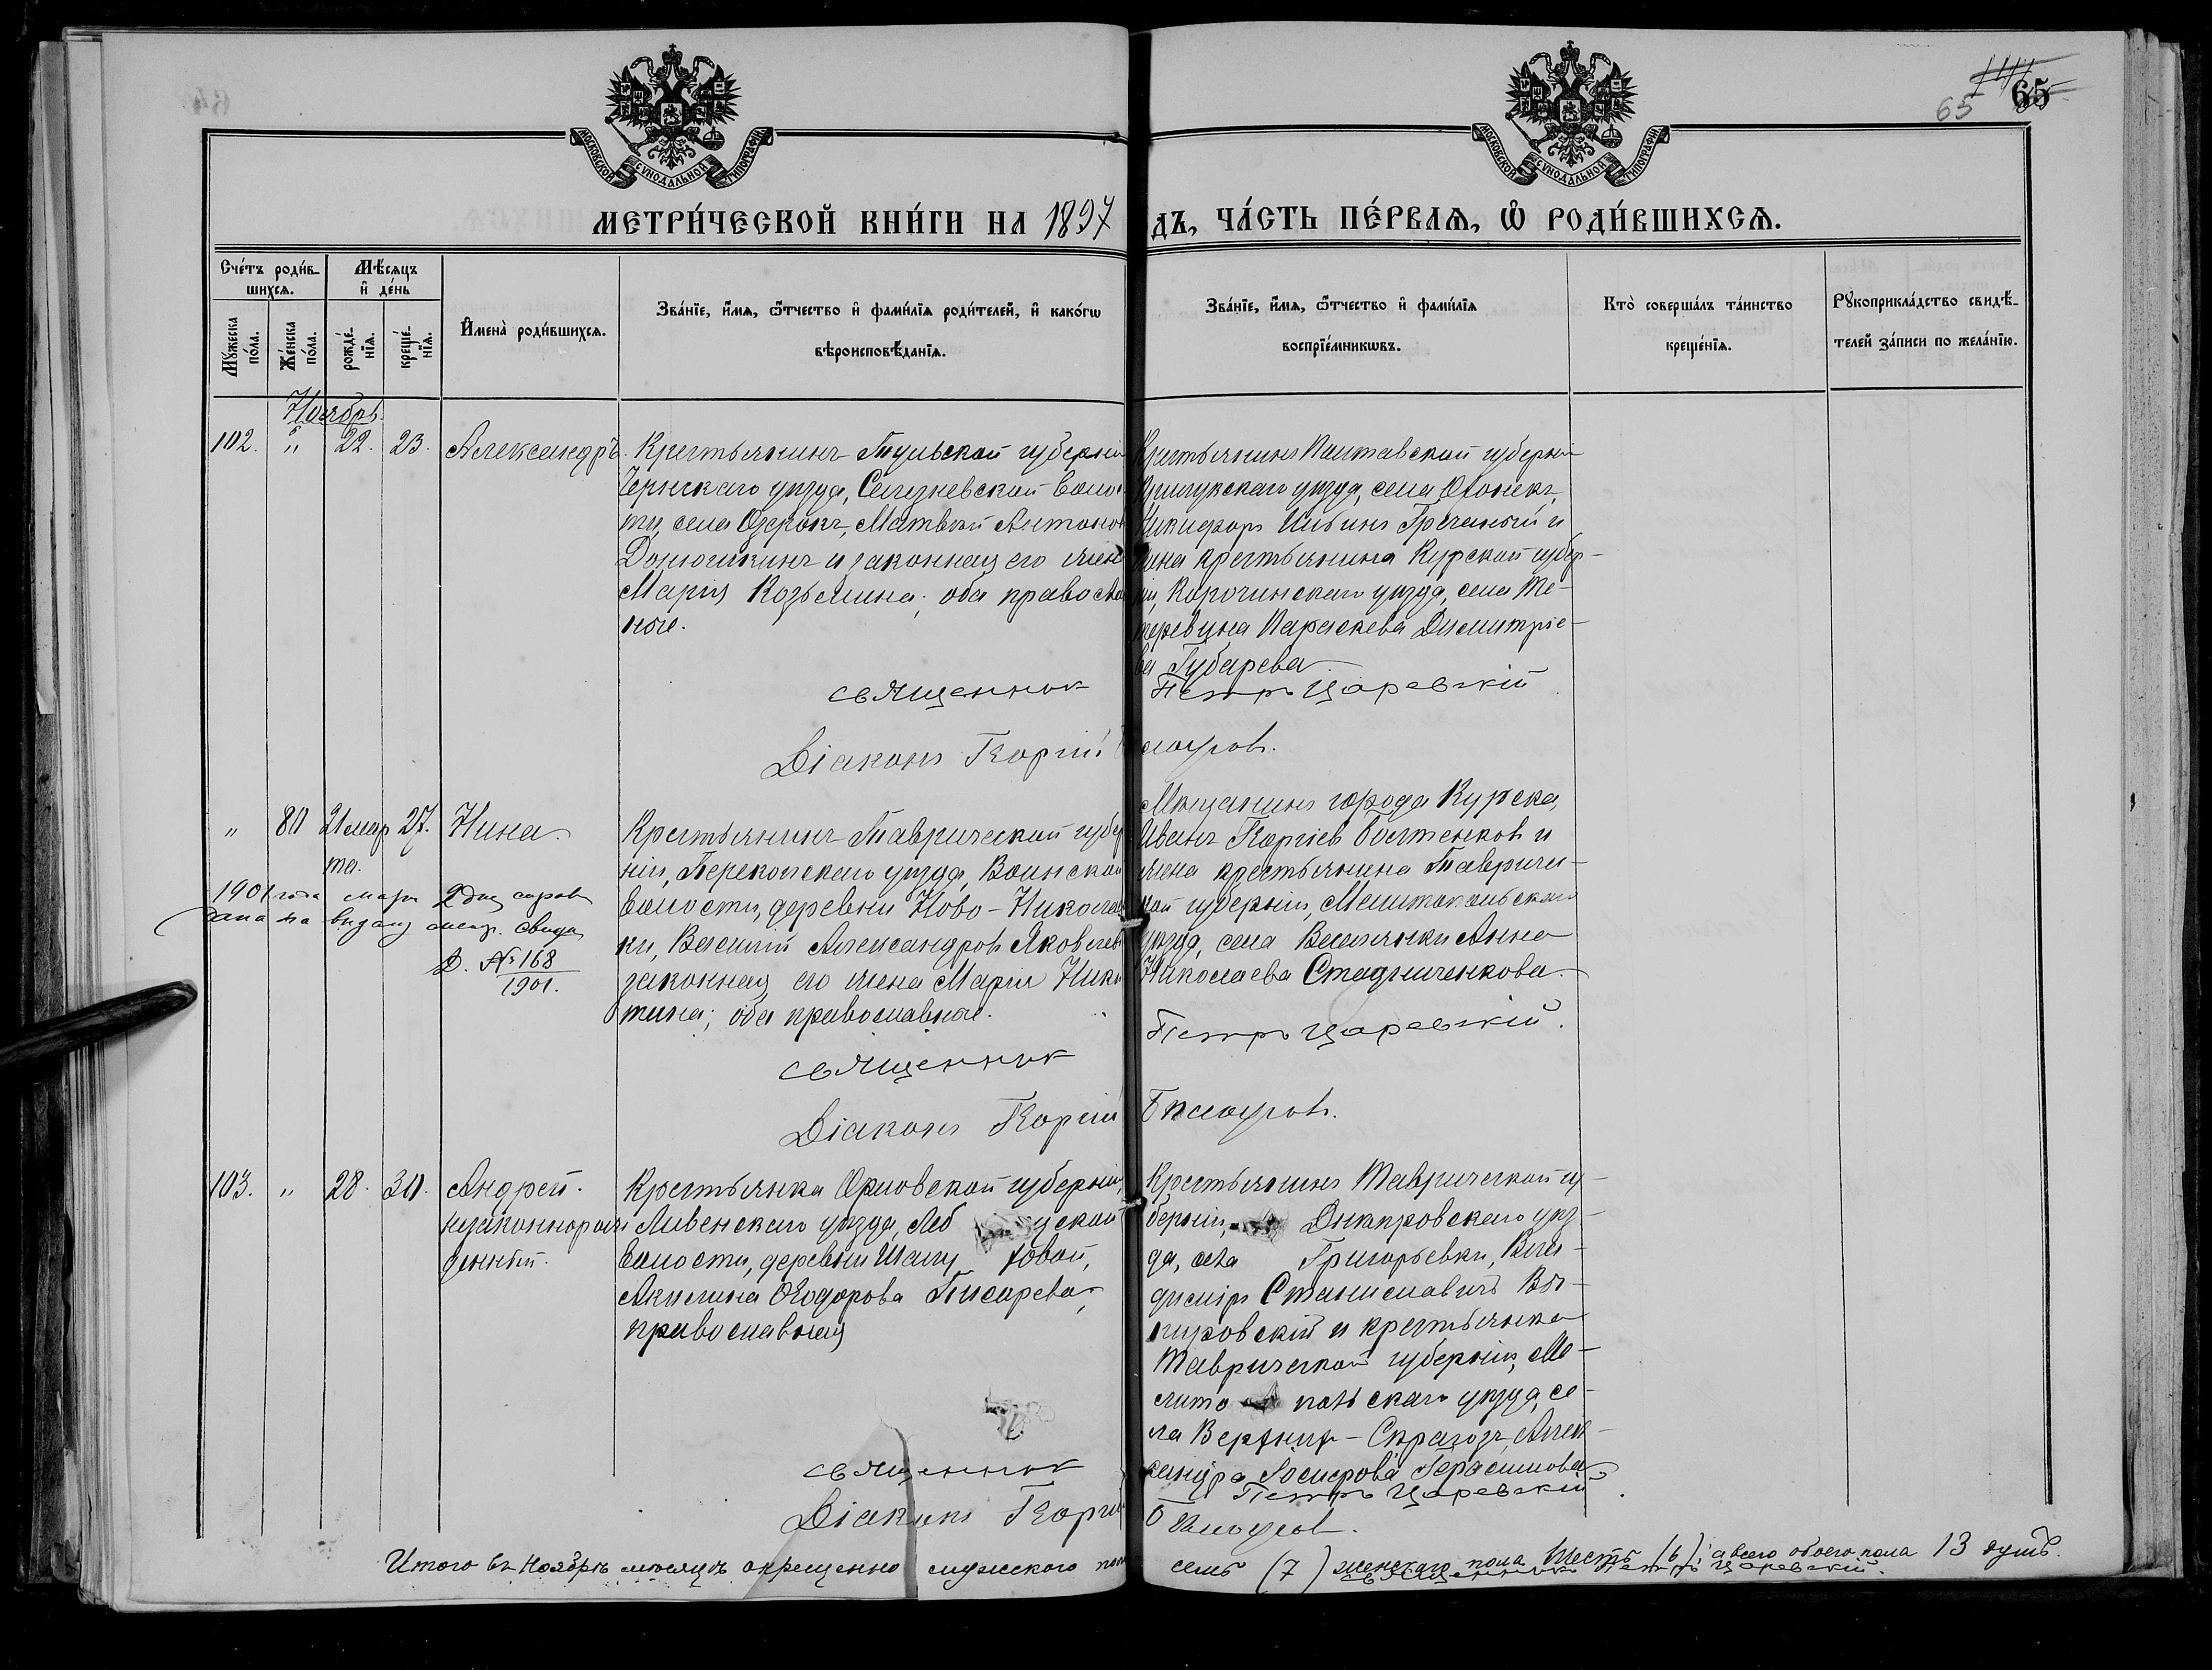 65
65
МОСКОВСКОЙ СѴНОДАЛЬНОЙ ТИПОГРАФІИ
МОСКОВСКОЙ СѴНОДАЛЬНОЙ ТИПОГРАФІИ
МЕТРИ́ЧЕСКОЙ КНИ́ГИ НА 1897
ДЪ, ЧА́СТЬ ПЕ́РВАѦ, Ѡ РОДИ́ВШИХСѦ.
Сче́тъ роди́в-
шихсѧ.
Мѣ́сѧцъ
и де́нь
Мꙋжеска по́ла.
Же́нска по́ла.
рожде́-
нїѧ.
креще́-
нїѧ.
Имена̀ роди́вшихсѧ.
Зва́нїе, и́мѧ, ѻ́тчество и фами́лїѧ роди́телей, и како́гѡ
вѣроисповѣ́данїѧ.
Зва́нїе, и́мѧ, ѻ́тчество и фами́лїѧ
воспрїе́мникѡвъ.
Кто̀ соверша́лъ та́инство
креще́нїѧ.
Рꙋкоприкла́дство свидѣ́-
телей за́писи по жела́нїю.
Ноябрь.
102. " 22. 23. Александръ.
Крестьянинъ Тульской губерніи
Чернскаго уѣзда, Селезневской волос-
ти, села Озерокъ, Матвѣй Антонов
и законная его жен
Марія Козьмина; оба правосла
ные.
Крестьянинъ Полтавской губерніи
уѣзда, села
Никифоръ Ильинъ Гречаный и
жена крестьянина Курской губер-
ніи, Корочинскаго уѣзда, села Те-
теревина Параскева Димитріе-
ва Губарева
Священникъ Петръ Царевскій.
Діаконъ Георгій
" 80 21 мар 27. Нина.
та.
Крестьянинъ Таврической губер
ніи, Перекопскаго уѣзда, Воинской
волости, деревни Ново-Николаев
ки, Василій Александровъ Яковлев
законная его жена Марія Ники
тина; оба православные.
Мѣщанинъ города Курска,
Иванъ Георгіевъ и
жена крестьянина Тавриче-
кой губерніи, Мелитопольскаго
уѣзда, села Веселянки Анна
Николаева Стадниченкова.
1901 года март 2 дня справ
дана на выдачу метр. свид.
Д. № 168
1901.
Священникъ Петръ Царевскій.
Діаконъ Георгій
103. " 28. 30. Андрей.
незаконнорож
денный.
Крестьянка Орловской губерніи,
Ливенскаго уѣзда, ской
волости, деревни
Акилина Ѳеодорова Писарева,
православная
Крестьянинъ Таврической гу-
берніи, Днѣпровскаго уѣз-
да, села Григорьевки, Вла-
диміръ Станиславичъ Вы-
ковскій и крестьянка
Таврической губерніи, Ме-
лито польскаго уѣзда, се-
ла Верхних-Сѣрагозъ, Алек-
сандра Герасимова
Священникъ Петръ Царевскій.
Діаконъ Георгій
Итого въ Ноябрѣ мѣсяцѣ окрещенно мужского пол семь (7) женскаго пола шесть (6); а всего обоего пола 13 душъ.
Священникъ Петръ Царевскій.